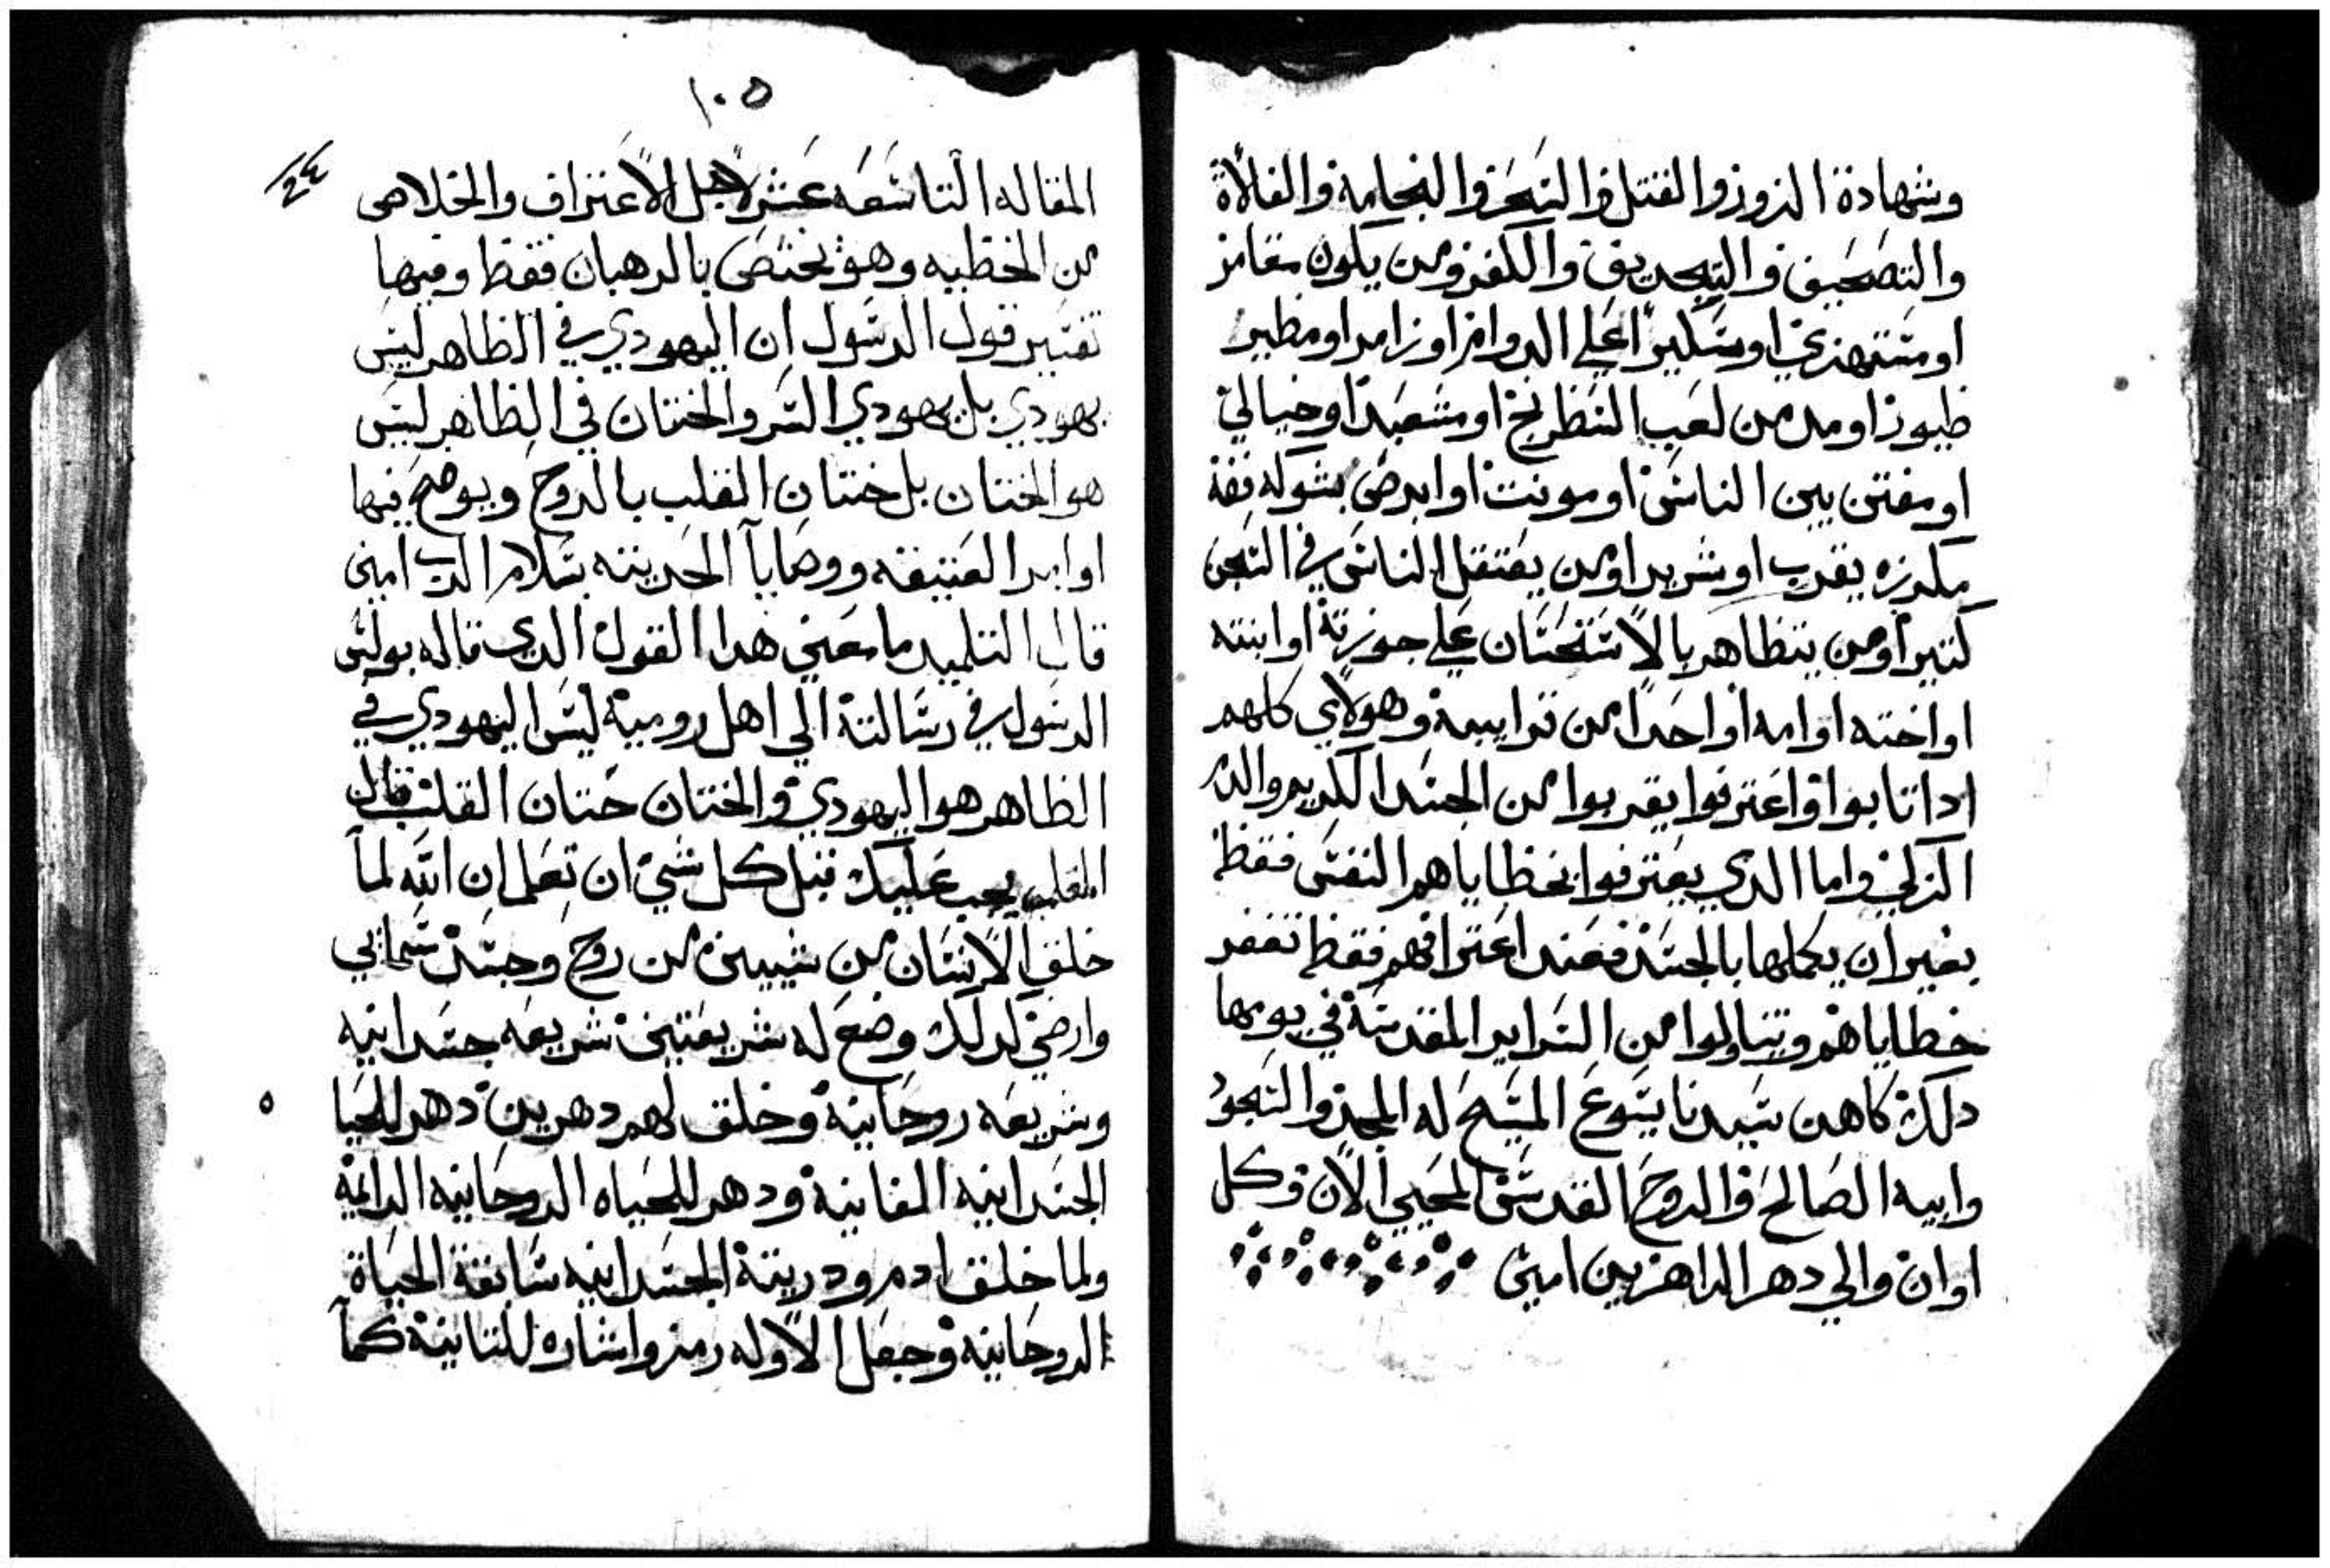 وشهادة الزور والقتل والسحر والنجامة والفلأة
والتصحيف والتجديف والكفر ومن يكون مقامر
او مستهزي او سكيراً علي الدوام او زامر او مطير
طيور او مدمن لعب الشطرنج او مشعبد او خيالي
او مفتن بين الناس او مونت او ابرص
يقرب او شريرا ومن يعتقل الناس في السجن
كتير اومن يتظاهر بالاستحسان علي جوزته او ابنته
او اخته او امه او احدا من قرايبه وهولاي كلهم
ادا تابوا واعترفوا يقربوا من الجسد الكريم والدم
الزكي واما الدي يعترفوا بخطاياهم النفس فقط
بغير ان يكملها بالجسد فعند اعترافهم فقط تغفر
خطاياهم ويتناولوا من السراير المقدسة في يومها
دلك كاهن سيدنا يسوع المسيح له المجد والسجود
وابيه الصالح والروح القدس المحيي الان وكل
اوان والي دهر الداهرين امين
١٠٥
٢٤
المقاله التاسعه عشر لاجل الاعتراف والخلاص
من الخطيه وهو يختص بالرهبان فقط وفيها
تفسير قول الرسول ان اليهودي في الظاهر ليس
يهودي بل يهودي السر والختان في الظاهر ليس
هو الختان بل ختان القلب بالروح ويوضح فيها
اوامر العتيقه ووصايا الحديثه بسلام الرب امين
قال التلميد ما معني هدا القول الدي قاله بولس
الرسول في رسالته الي اهل رومية ليس اليهودي في
الظاهر هو اليهودي والختان ختان القلب قال
المعلم يجب عليك قبل كل شي ان تعلم ان الله لما
خلق الانسان من شيين من روح وجسد سماي
وارضي لدلك وضع له شريعتين شريعه جسدانيه
وشريعه روحانية وخلق لهم دهرين دهر للحيا
الجسدانيه الفانية ودهر للحياه الروحانيه الدايمة
ولما خلق ادم ودريته الجسدانيه سابقة الحياة
الروحانية وجعل الاوله رمز واشاره للتانية كما